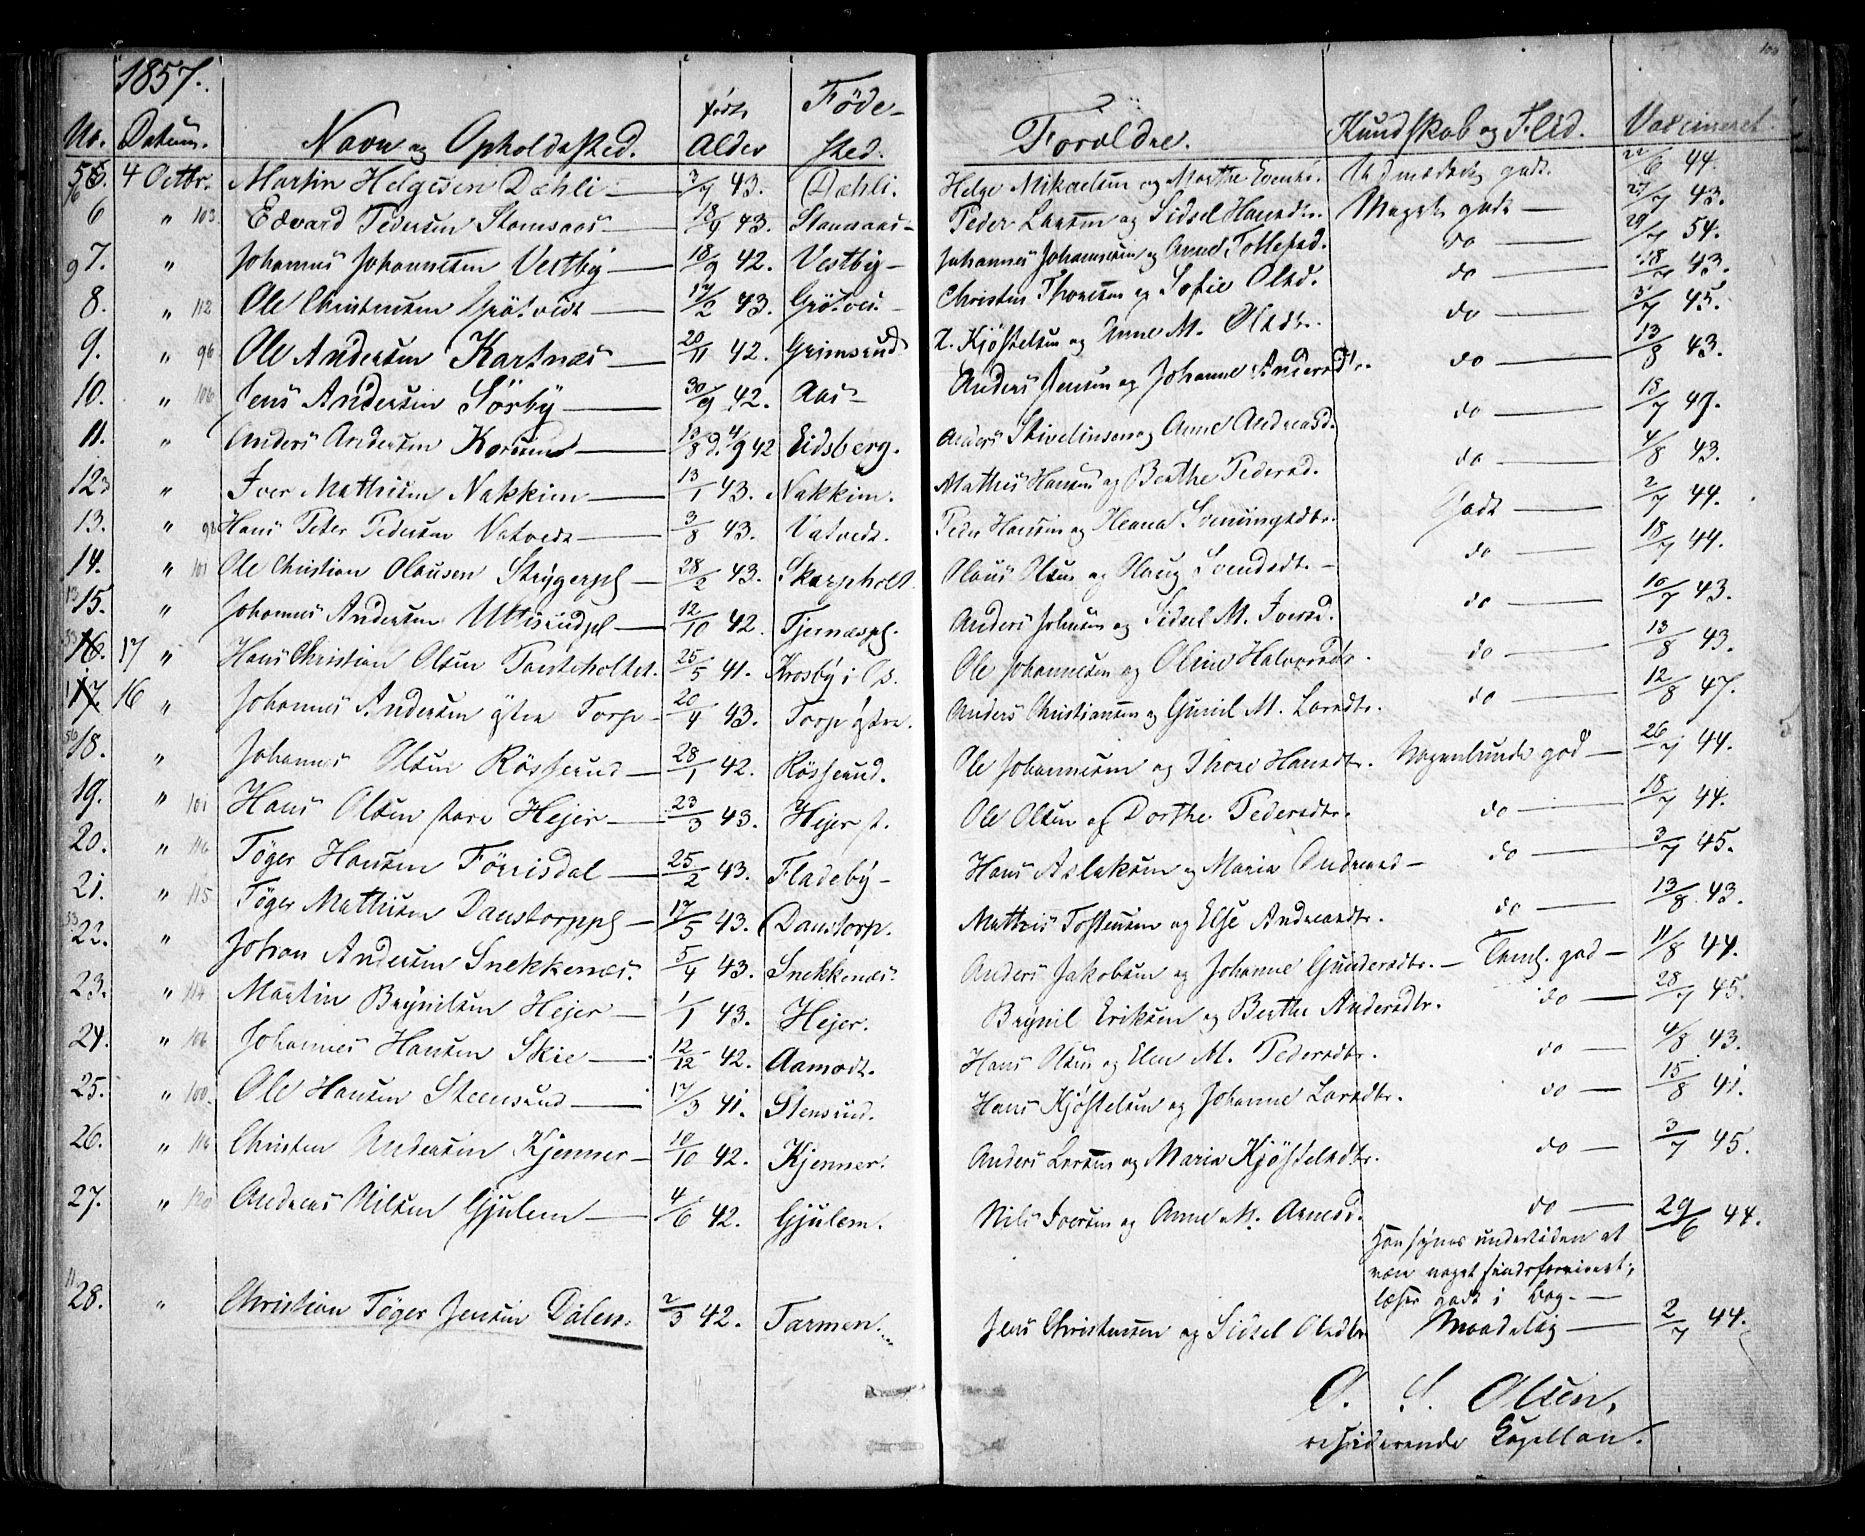 1857.
No. Datum. Navn og Opholdssted. født Alder Føde-sted. Forældre. Kundskab og Flid. Vaccineret.
5. 4 Octbr. Martin Helgesen Dæhli 3/7 43. Dæhli. Helge Mikaelsen og Marthe godt. 22/6 44.
6 " 103 Edvard Pedersen Stomsaas 18/9 43. Stomsaas Peder Larsen og Sidsel Hansdtr. Meget godt 27/7 43.
7. " Johannes Johannesen Vestby 18/9 42. Vestby Johannes Johannesen og Anne Tollefsd. do 54.
8. " 112 Ole Christensen Grötvedt 17/2 43. Grötved. Christen Thoresen og Sofie Olsd. do 18/7 43.
9. " 96 Ole Andersen Kartnæs 20/11 42. Grimsrud Kjöstelsen og Anne M. Olsdtr. do 3/7 45.
10. " 106 Jens Andersen Sörby 30/9 42. Aas Anders Jensen og Johanne Andersdtr. do 13/8 43.
11. " Anders Andersen 13/8 d. 4/9 42 Eidsberg. Anders og Anne Andreasd. do 18/7 49.
12 " Iver Mathisen Nakkim 13/1 43. Nakkim. Mathis Hansen og Berthe Pedersd. do 4/8 43.
13. " 98 Hans Peter Pedersen Vatvedt 3/8 43. Vatvedt. Peder Hansen og Svenningsdtr. Godt 2/7 44.
14. " 101 Ole Christian Olausen 28/2 43. Skarpholt. Olaus Olsen og Svendsdtr. do 18/7 44.
15. " Johannes Andersen 12/10 42. Tjernæspl. Anders Johnsen og Sidsel M. Iversd. do 10/7 43.
16. 17 " Hans Christian Olsen 25/5 41. Krosby i Ås. Ole Johannesen og Oline Halvorsdtr. do 13/8 43.
17. 16 " Johannes Andersen östre Torp 20/4 43. Torp östre. Anders Christiansen og Gunil M. Larsdtr. do 12/8 47.
18. " Johannes Olsen Rösserud 28/1 42. Rösserud. Ole Johannesen og Thore Hansdtr. Nogenlunde god 26/7 44.
19. " 101 Hans Olsen store Hejer 23/3 43. Hejer st. Ole Olsen og Dorthe Pedersdtr. do 18/7 44.
20. " 116 Töger Hansen Förrisdal 25/2 43. Fladeby Hans Aslaksen og Maria Andreasd do 3/7 45.
21. " 115 Töger Mathisen Danstorppl 17/5 43. Danstorp. Mathis Tostensen og Else Andreasdtr. do 13/8 43.
22. " Johan Andersen Snekkenæs. 5/4 43. Snekkenæs. Anders Jakobsen og Johanne Gundersdtr. Teml. god 11/8 44.
23. " 114 Martin Brynilsen Hejer 1/1 43. Hejer. Brynil Eriksen og Berthe Andersdtr. do 28/7 45.
24. " 106 Johannes Hansen Skie 12/12 42. Aamodt. Hans Olsen og Elen M. Pedersdtr. do 4/8 43.
25. " 100. Ole Hansen Steensrud 17/3 41. Stensrud. Hans Kjöstelsen og Johanne Larsdtr. do 15/8 41.
26. " 116 Christen Andersen Kjenner 10/10 42. Kjenner. Anders Larsen og Maria Kjöstelsdtr. do 3/7 45.
27. " 120 Andreas Nilsen Gjulem 4/6 42. Gjulem. Nils Iversen og Anne M. Arnesd. do 29/6 44.
Han synes undertiden at
være noget sindsforvirret;
læser godt i Bog.
28. " Christian Töger Jensen Dalen. 2/3 42. Tarmen. Jens Christensen og Sidsel Olsdtr Maadelig 2/7 44.
O. S. Olsen,
residerende Capellan.